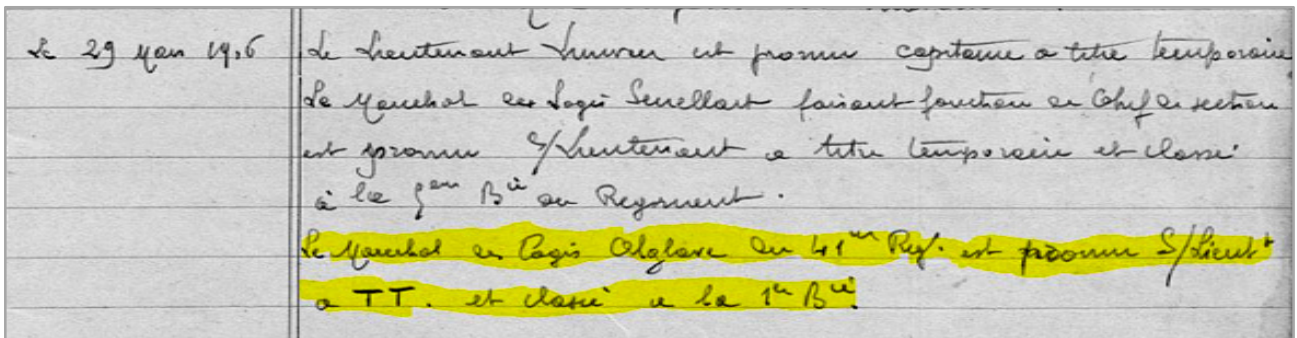 Le 29 Mars 1916 Le Lieutenant est promu capitaine a titre temporaire
Le Marechal des Logis Senellart faisant fonction de Chef de section
est promu S/Lieutenant a titre temporaire et classé
à la Bie du Regiment.
Le Marechal des Logis Olglave du 41me Reg. est promu S/Lieutt
a TT. et classé a la 1re Bie.